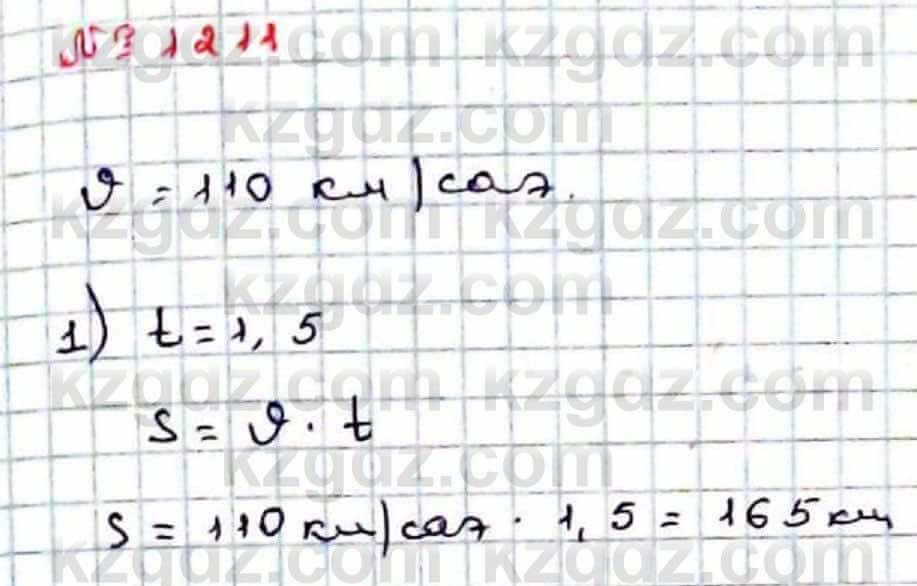 № 1211
kzgdz.com kzgdz.com
kzgdz.com
ϑ = 110 км/сағ.
kzgdz.com kzgdz.com
kzgdz.com
1) t = 1,5
kzgdz.com kzgdz.com
s = ϑ · t
kzgdz.com
s = 110 км/сағ · 1,5 = 165 км
kzgdz.com kzgdz.com